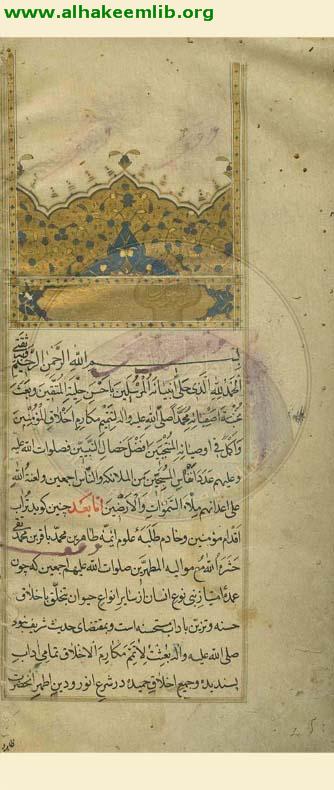 www.alhakeemlib.org
بسم الله الرحمن الرحيم
الحمد لله الذی حلّی انبیائه المرسلین باحسن حلیة المتقین وبعث
نخبة اصفیائه محمدا صلی الله علیه واله لیتمم مکارم اخلاق المؤمنین
واکمل فی اوصیائه المنتجبین افضل خصال النبیین فصلوات الله علیه
وعلیهم عدد انفاس المسبحین من الملائکة والناس اجمعین ولعنة الله
علی اعدائهم ملاء السموات والارضین اما بعد چنین کوید تراب
اقدام مؤمنین وخادم طلبه علوم ائمه طاهرین محمد باقر بن محمد تقی
حشره الله مع موالیه المطهرین صلوات الله علیهم اجمعین که چون
عمدهٔ امتیاز بنی نوع انسان از سایر انواع حیوان بتخلق باخلاق
حسنه وتزین باداب مستحسنه است وبمقتضای حدیث شریف نبوی
صلی الله علیه واله بعثت لاتمم مکارم الاخلاق تمامی اداب
پسندیده وجمیع اخلاق حمیده در شرع انور ودین اطهر انحضرت